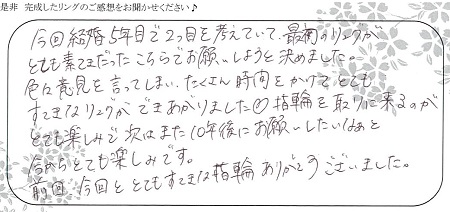 是非 完成したリングのご感想をお聞かせください♪
今回結婚5年目で2つ目を考えていて、最初のリングが
とても素てきだったこちらでお願いしようと決めました。
色々意見を言ってしまい、たくさん時間をかけて、とても
すてきなリングができあがりました 指輪を取りに来るのが
とても楽しみで次はまた10年後にお願いしたいなぁと
今からとても楽しみです。
前回、今回ととてもすてきな指輪ありがとうございました。